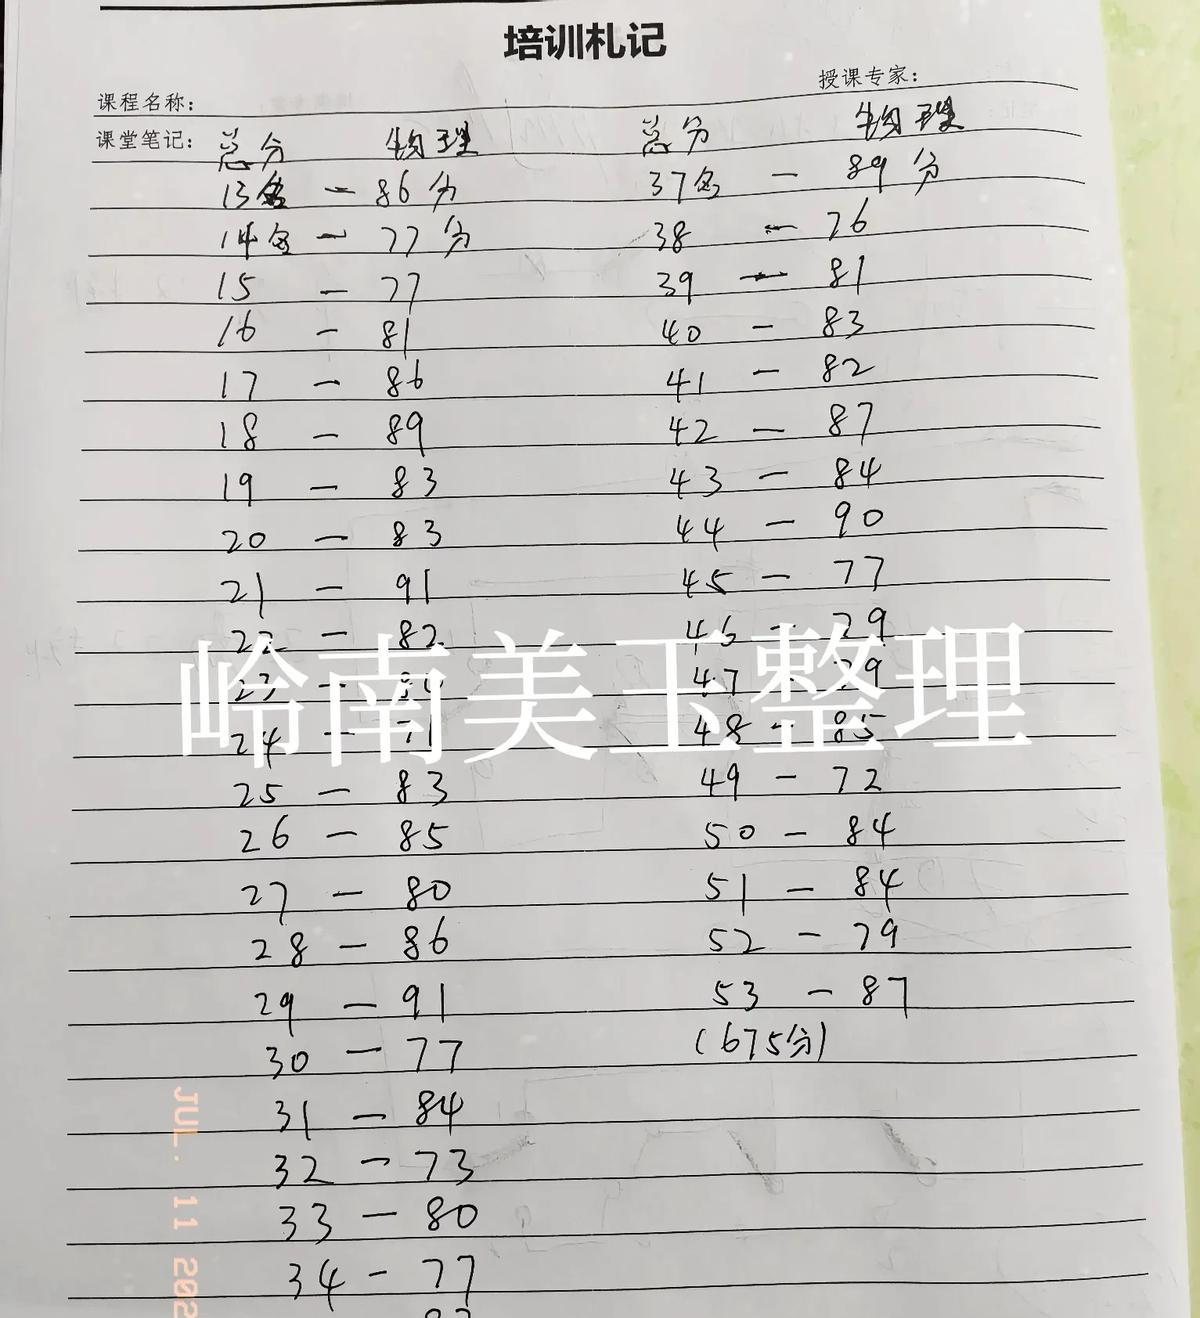 培训札记
课程名称：
授课专家：
课堂笔记：
总分 物理
13名 — 86分
14名 — 77分
15 — 77
16 — 81
17 — 86
18 — 89
19 — 83
20 — 83
21 — 91
22 — 82
23 —
24 — 71
25 — 83
26 — 85
27 — 80
28 — 86
29 — 91
30 — 77
31 — 84
32 — 73
33 — 80
34 — 77
总分 物理
37名 — 89分
38 — 76
39 — 81
40 — 83
41 — 82
42 — 87
43 — 84
44 — 90
45 — 77
46 — 79
47 79
48 — 85
49 — 72
50 — 84
51 — 84
52 — 79
53 — 87
(675分)
岭南美玉整理
JUL. 11 202